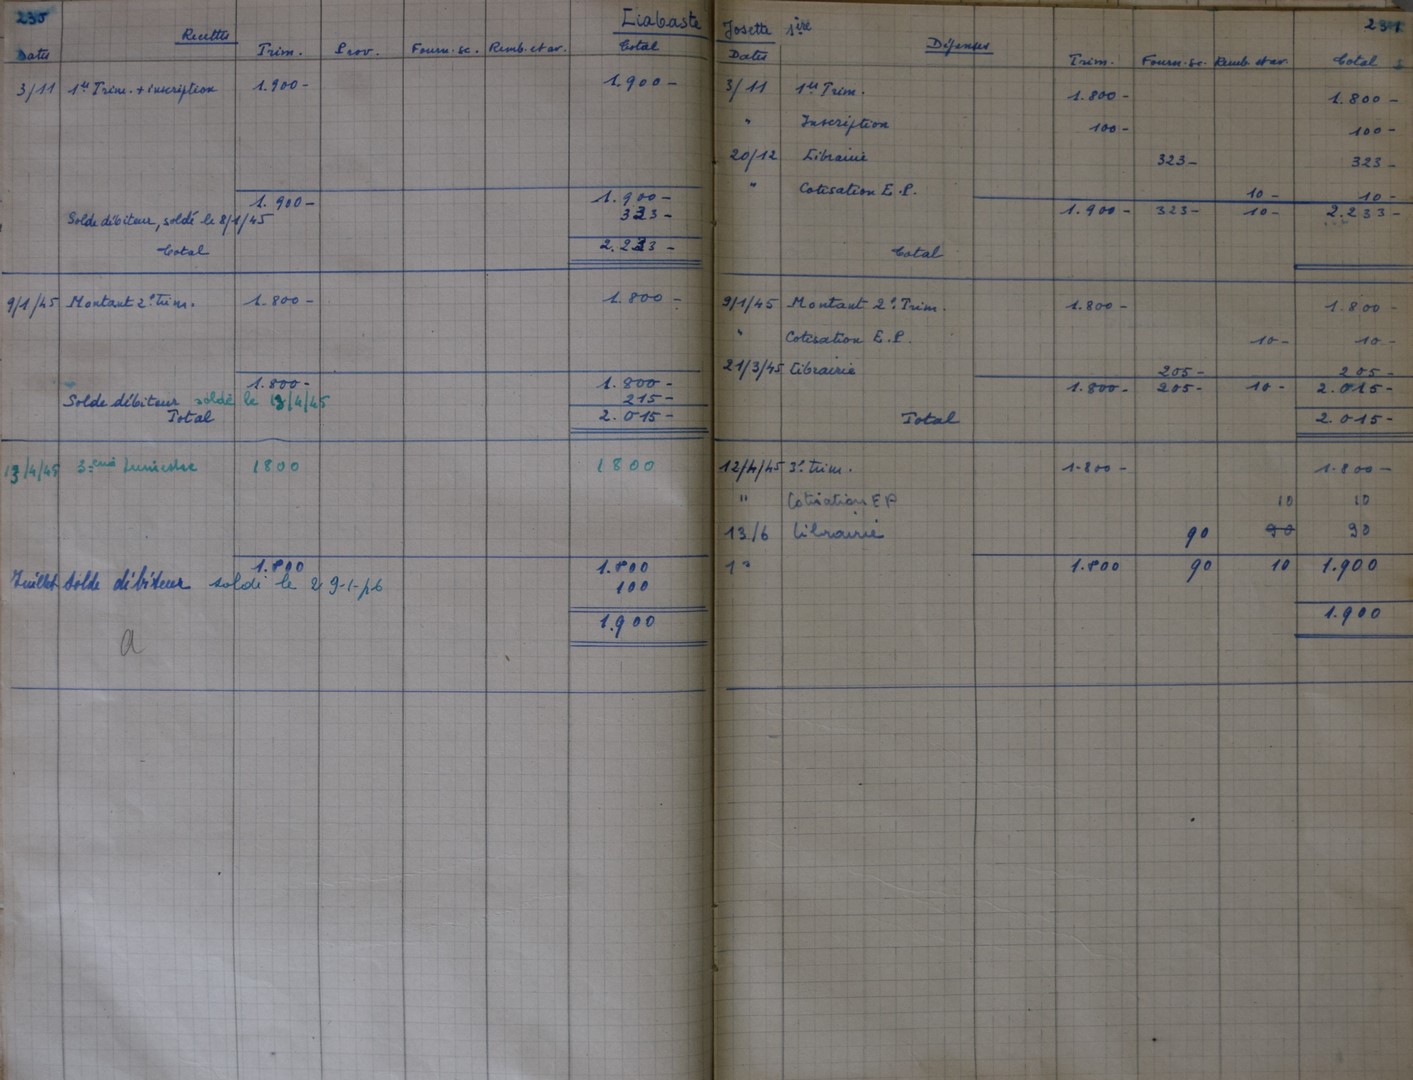 230
Liabaste
Recettes
Dates Trim. Prov. Fourn. sc. Remb. et av. Total
3/11 1er Trim. + inscription 1.900- 1.900-
1.900- 1.900-
Solde débiteur, soldé le 8/1/45 333-
Total 2.233-
9/1/45 Montant 2e trim. 1.800- 1.800-
1.800- 1.800-
Solde débiteur soldé le 13/4/45 215-
Total 2.015-
13/4/45 3ème trimestre 1800 1800
1.800 1.800
Juillet solde débiteur soldé le 29-1-46 100
1.900
a
Josette 1ère 231
Dates Dépenses Trim. Fourn. sc. Remb. et av. Total
3/11 1er Trim. 1.800- 1.800-
" Inscription 100- 100-
20/12 Librairie 323- 323-
" Cotisation E.P. 10- 10-
1.900- 323- 10- 2.233-
Total
9/1/45 Montant 2e Trim. 1.800- 1.800-
" Cotisation E.P. 10- 10-
21/3/45 Librairie 205- 205-
1.800- 205- 10- 2.015-
Total 2.015-
12/4/45 3e trim. 1.800- 1.800-
" Cotisation EP 10 10
13/6 Librairie 90 90 90
1.800 90 10 1.900
1.900